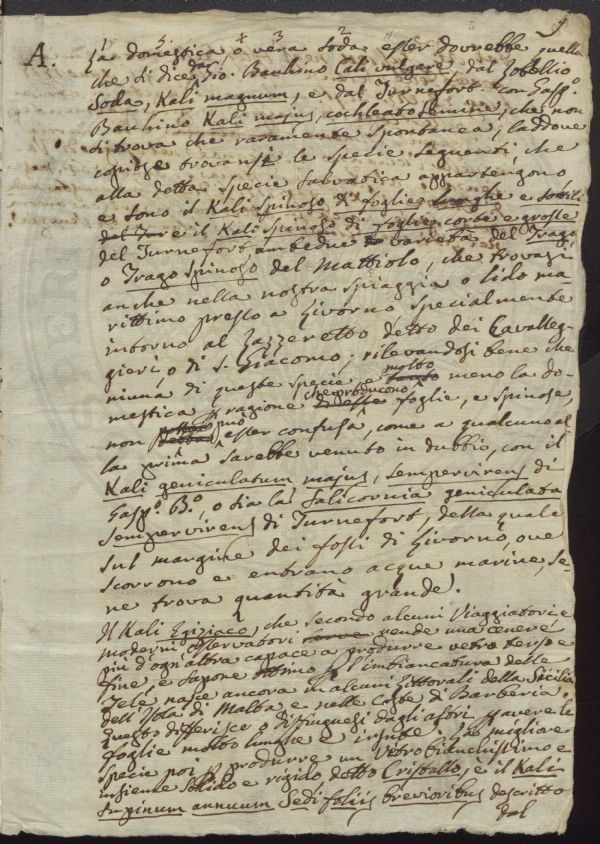 A. La domestica o vera Soda esser dovrebbe quella
che si dice da Gio. Bauhino Cali vulgare, dal Lobellio
Soda, Kali magnum, e dal Turnefort con Gasp.o
Bauhino Kali majus, cochleato semine, che non
si trova che raramente spontanea, laddove
copiose trovansi le specie seguenti, che
alla detta specie salvatica appartengono
e sono il Kali Spinoso di foglie lunghe e sottili
del Tur e il Kali Spinoso di foglie corte e grosse
del Turnefort ambedue varietà del Trago
o Trago spinoso del Mattiolo, che trovasi
anche nella nostra spiaggia o lido ma
rittimo presso a Livorno specialmente
intorno al Lazzeretto detto dei Cavalleg-
gieri, o di S. Giacomo; rilevandosi bene che
niuna di queste specie, e molto meno la do-
mestica per ragione che producono foglie, e spinose,
non può esser confusa, come a qualcuno al
la prima sarebbe venuto in dubbio, con il
Kali geniculatum majus, sempervirens di
Gasp.o B.o, o sia la Salicornia geniculata
sempervirens di Turnefort, della quale
sul margine dei fossi di Livorno, ove
scorrono e entrano acque marine, se-
ne trova quantità grande.
Il Kali Egiziaco, che secondo alcuni Viaggiatori e
moderni osservatori rende una cenere
più d'ogn'altra capace a produrre vetro terso e
fine, e sapone ottimo per l'imbiancatura delle
Tele, nasce ancora in alcuni Littorali della Sicilia
dell'Isola di Malta e nelle Coste di Barberia.
Questo differisce o distinguesi dagli altri per avere le
foglie molto lunghe e irsute. La migliore
specie poi per produrre un vetro lucidissimo e
insieme solido e rigido detto Cristallo, è il Kali
supinum annuum Sedi foliis brevioribus descritto
dal